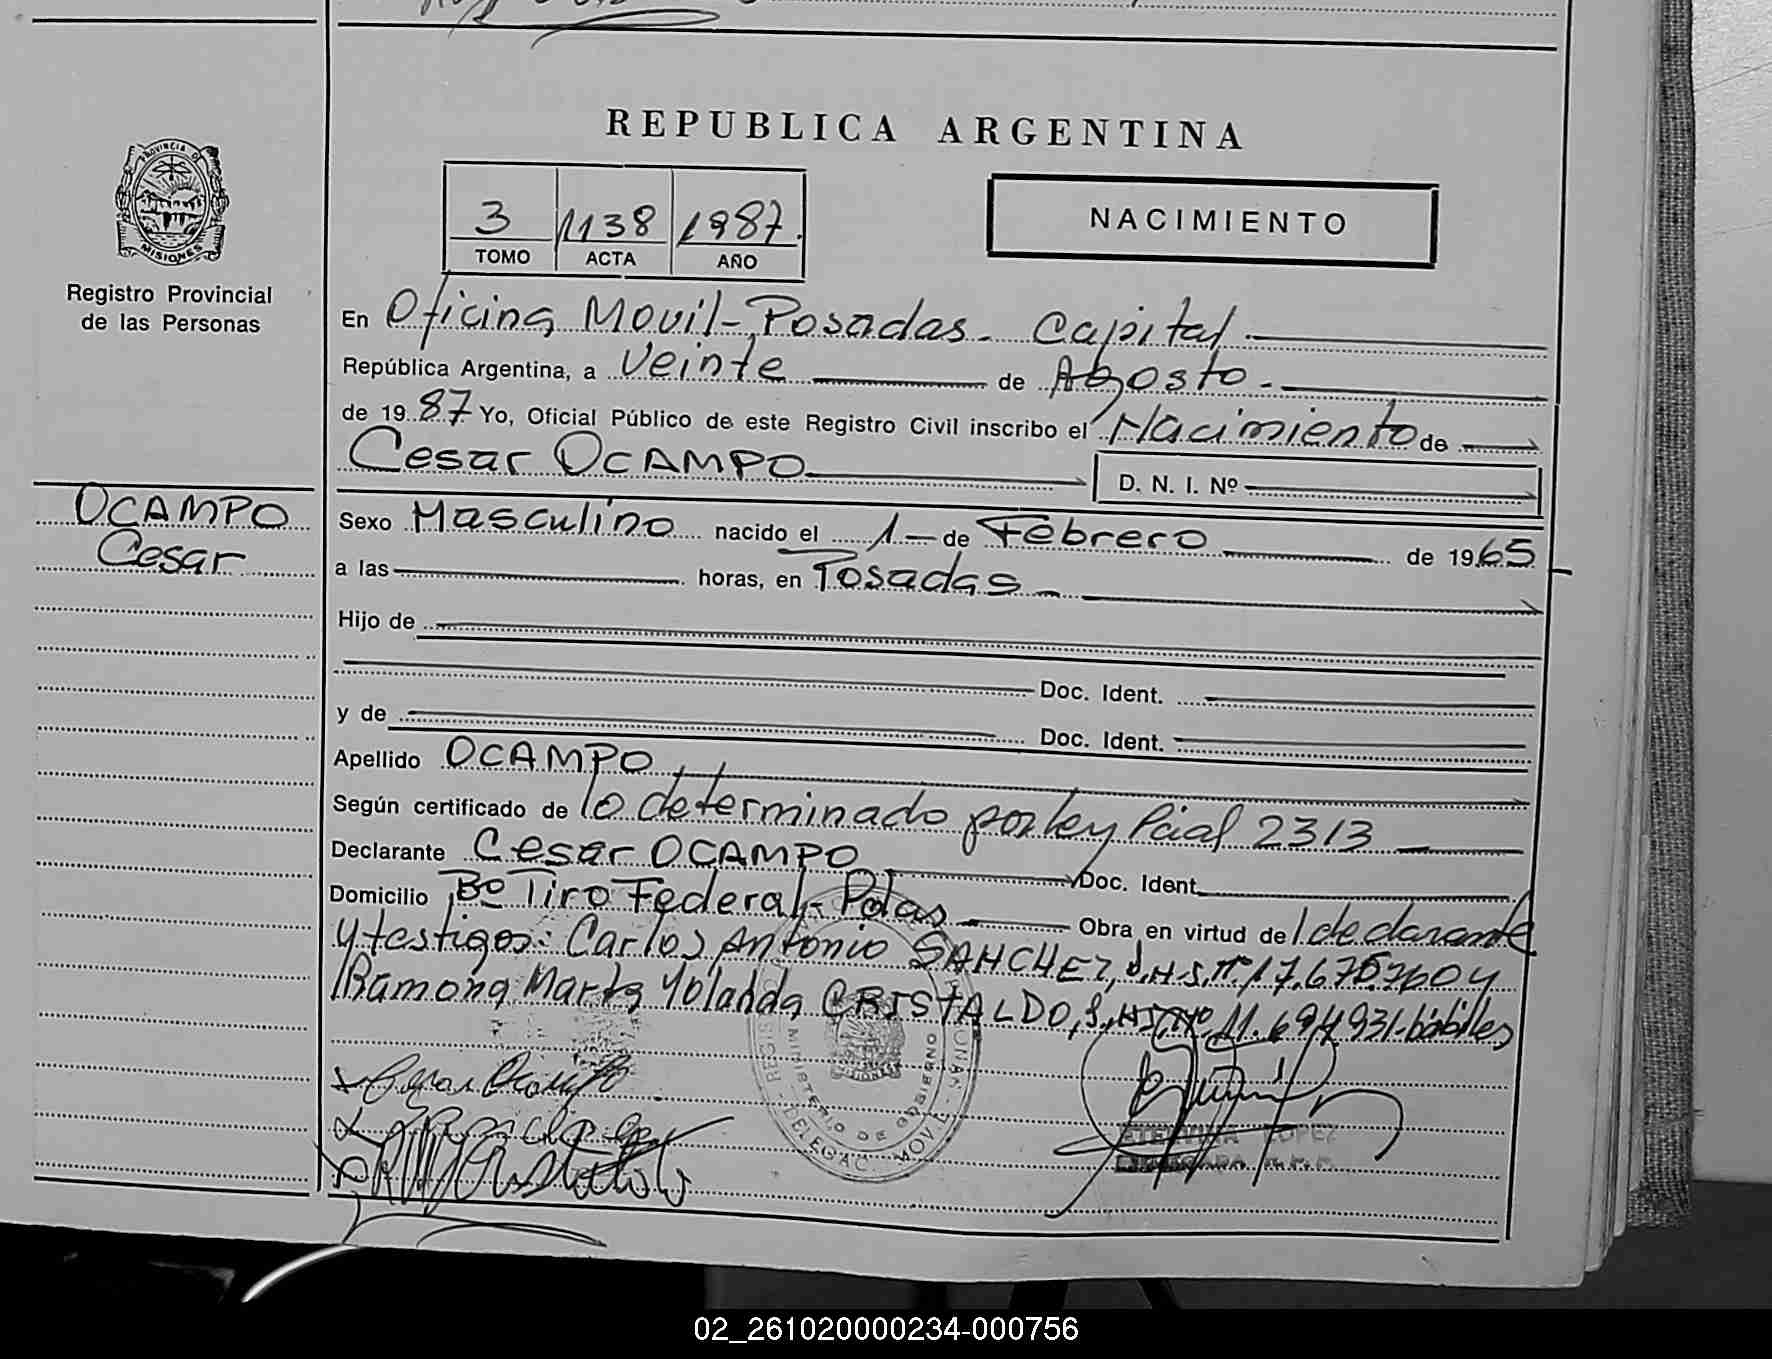 REPUBLICA ARGENTINA
PROVINCIA DE MISIONES
Registro Provincial
de las Personas
3 1138 1987.
TOMO ACTA AÑO
NACIMIENTO
En Oficina Movil - Posadas - Capital
República Argentina, a veinte de Agosto.
de 1987 Yo, Oficial Público de este Registro Civil inscribo el Nacimiento de
Cesar OCAMPO D. N. I. Nº
OCAMPO
Cesar
Sexo Masculino nacido el 1 de Febrero de 1965
a las horas, en Posadas
Hijo de
Doc. Ident.
y de Doc. Ident.
Apellido OCAMPO
Según certificado de lo determinado por ley Pcial 2313
Declarante Cesar OCAMPO Doc. Ident.
Domicilio Bº Tiro Federal - Pdas Obra en virtud del declarante
y testigos: Carlos Antonio SANCHEZ, y
Ramona Marta Yolanda CRISTALDO, hábiles
MINISTERIO DE GOBIERNO
DELEGAC. MOVIL
LOPEZ
02_261020000234-000756